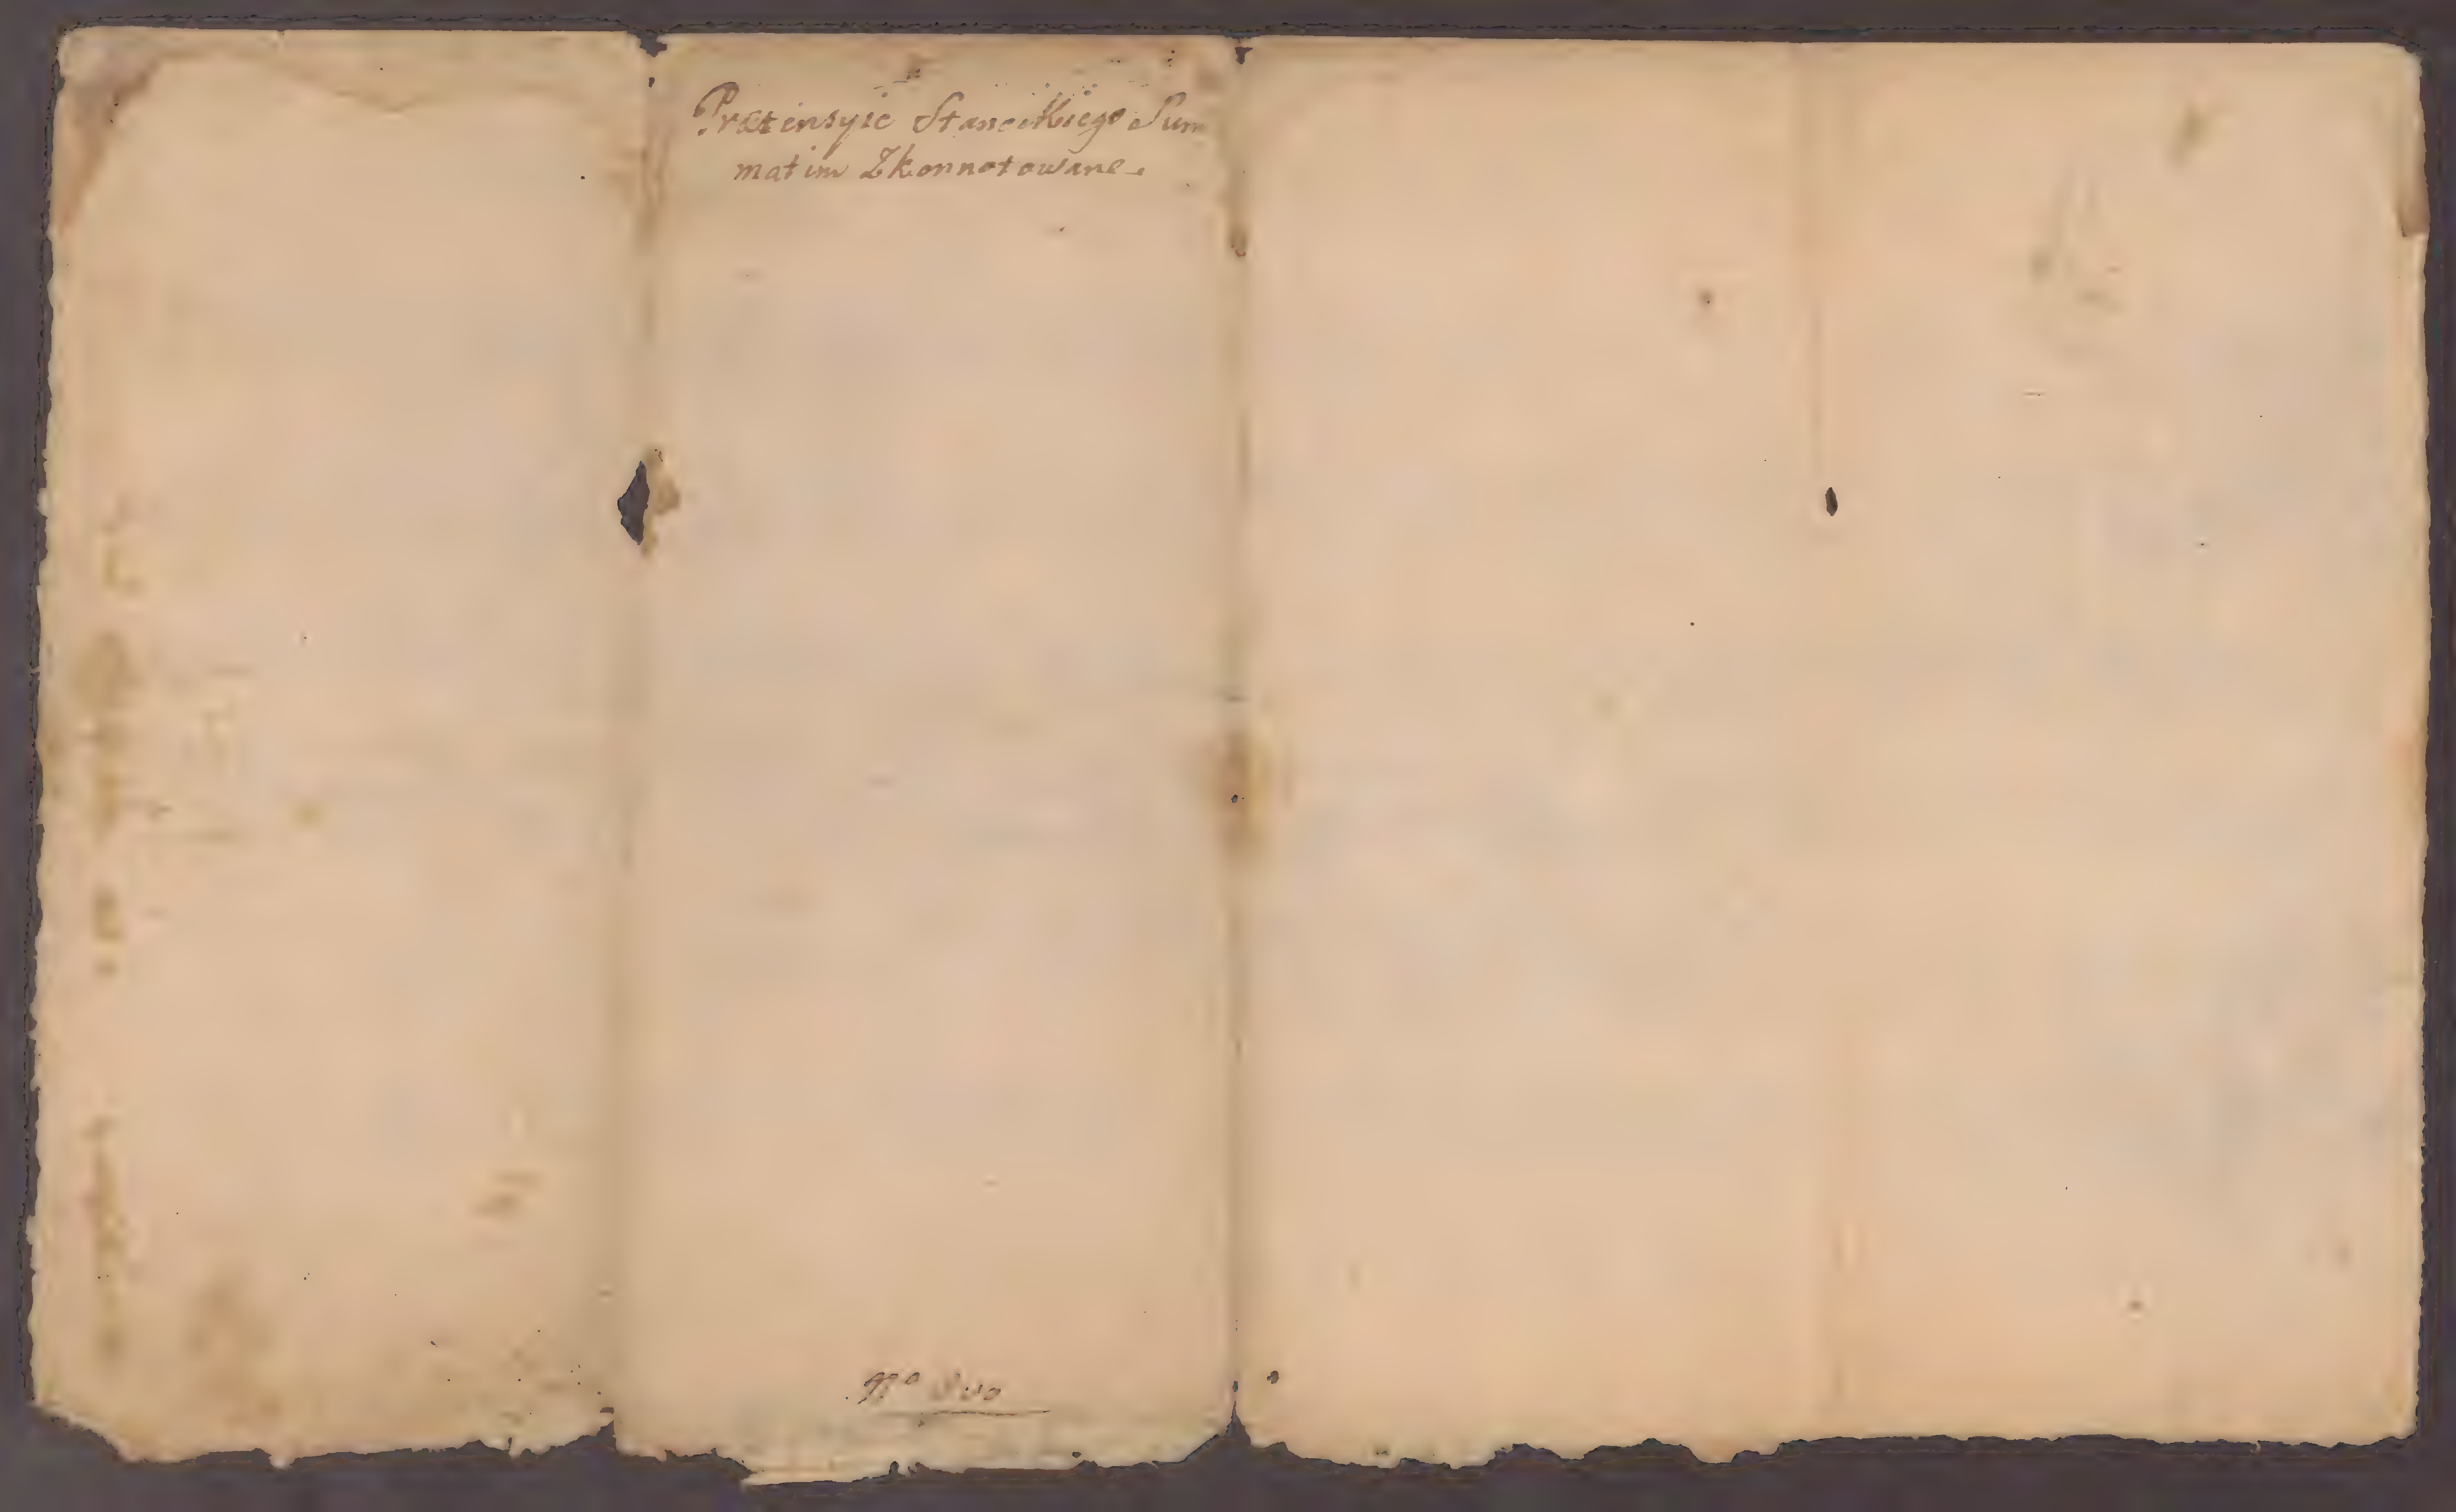 Prætensyie Staneckiego Sum
matim Zkonnotowane.
Nº